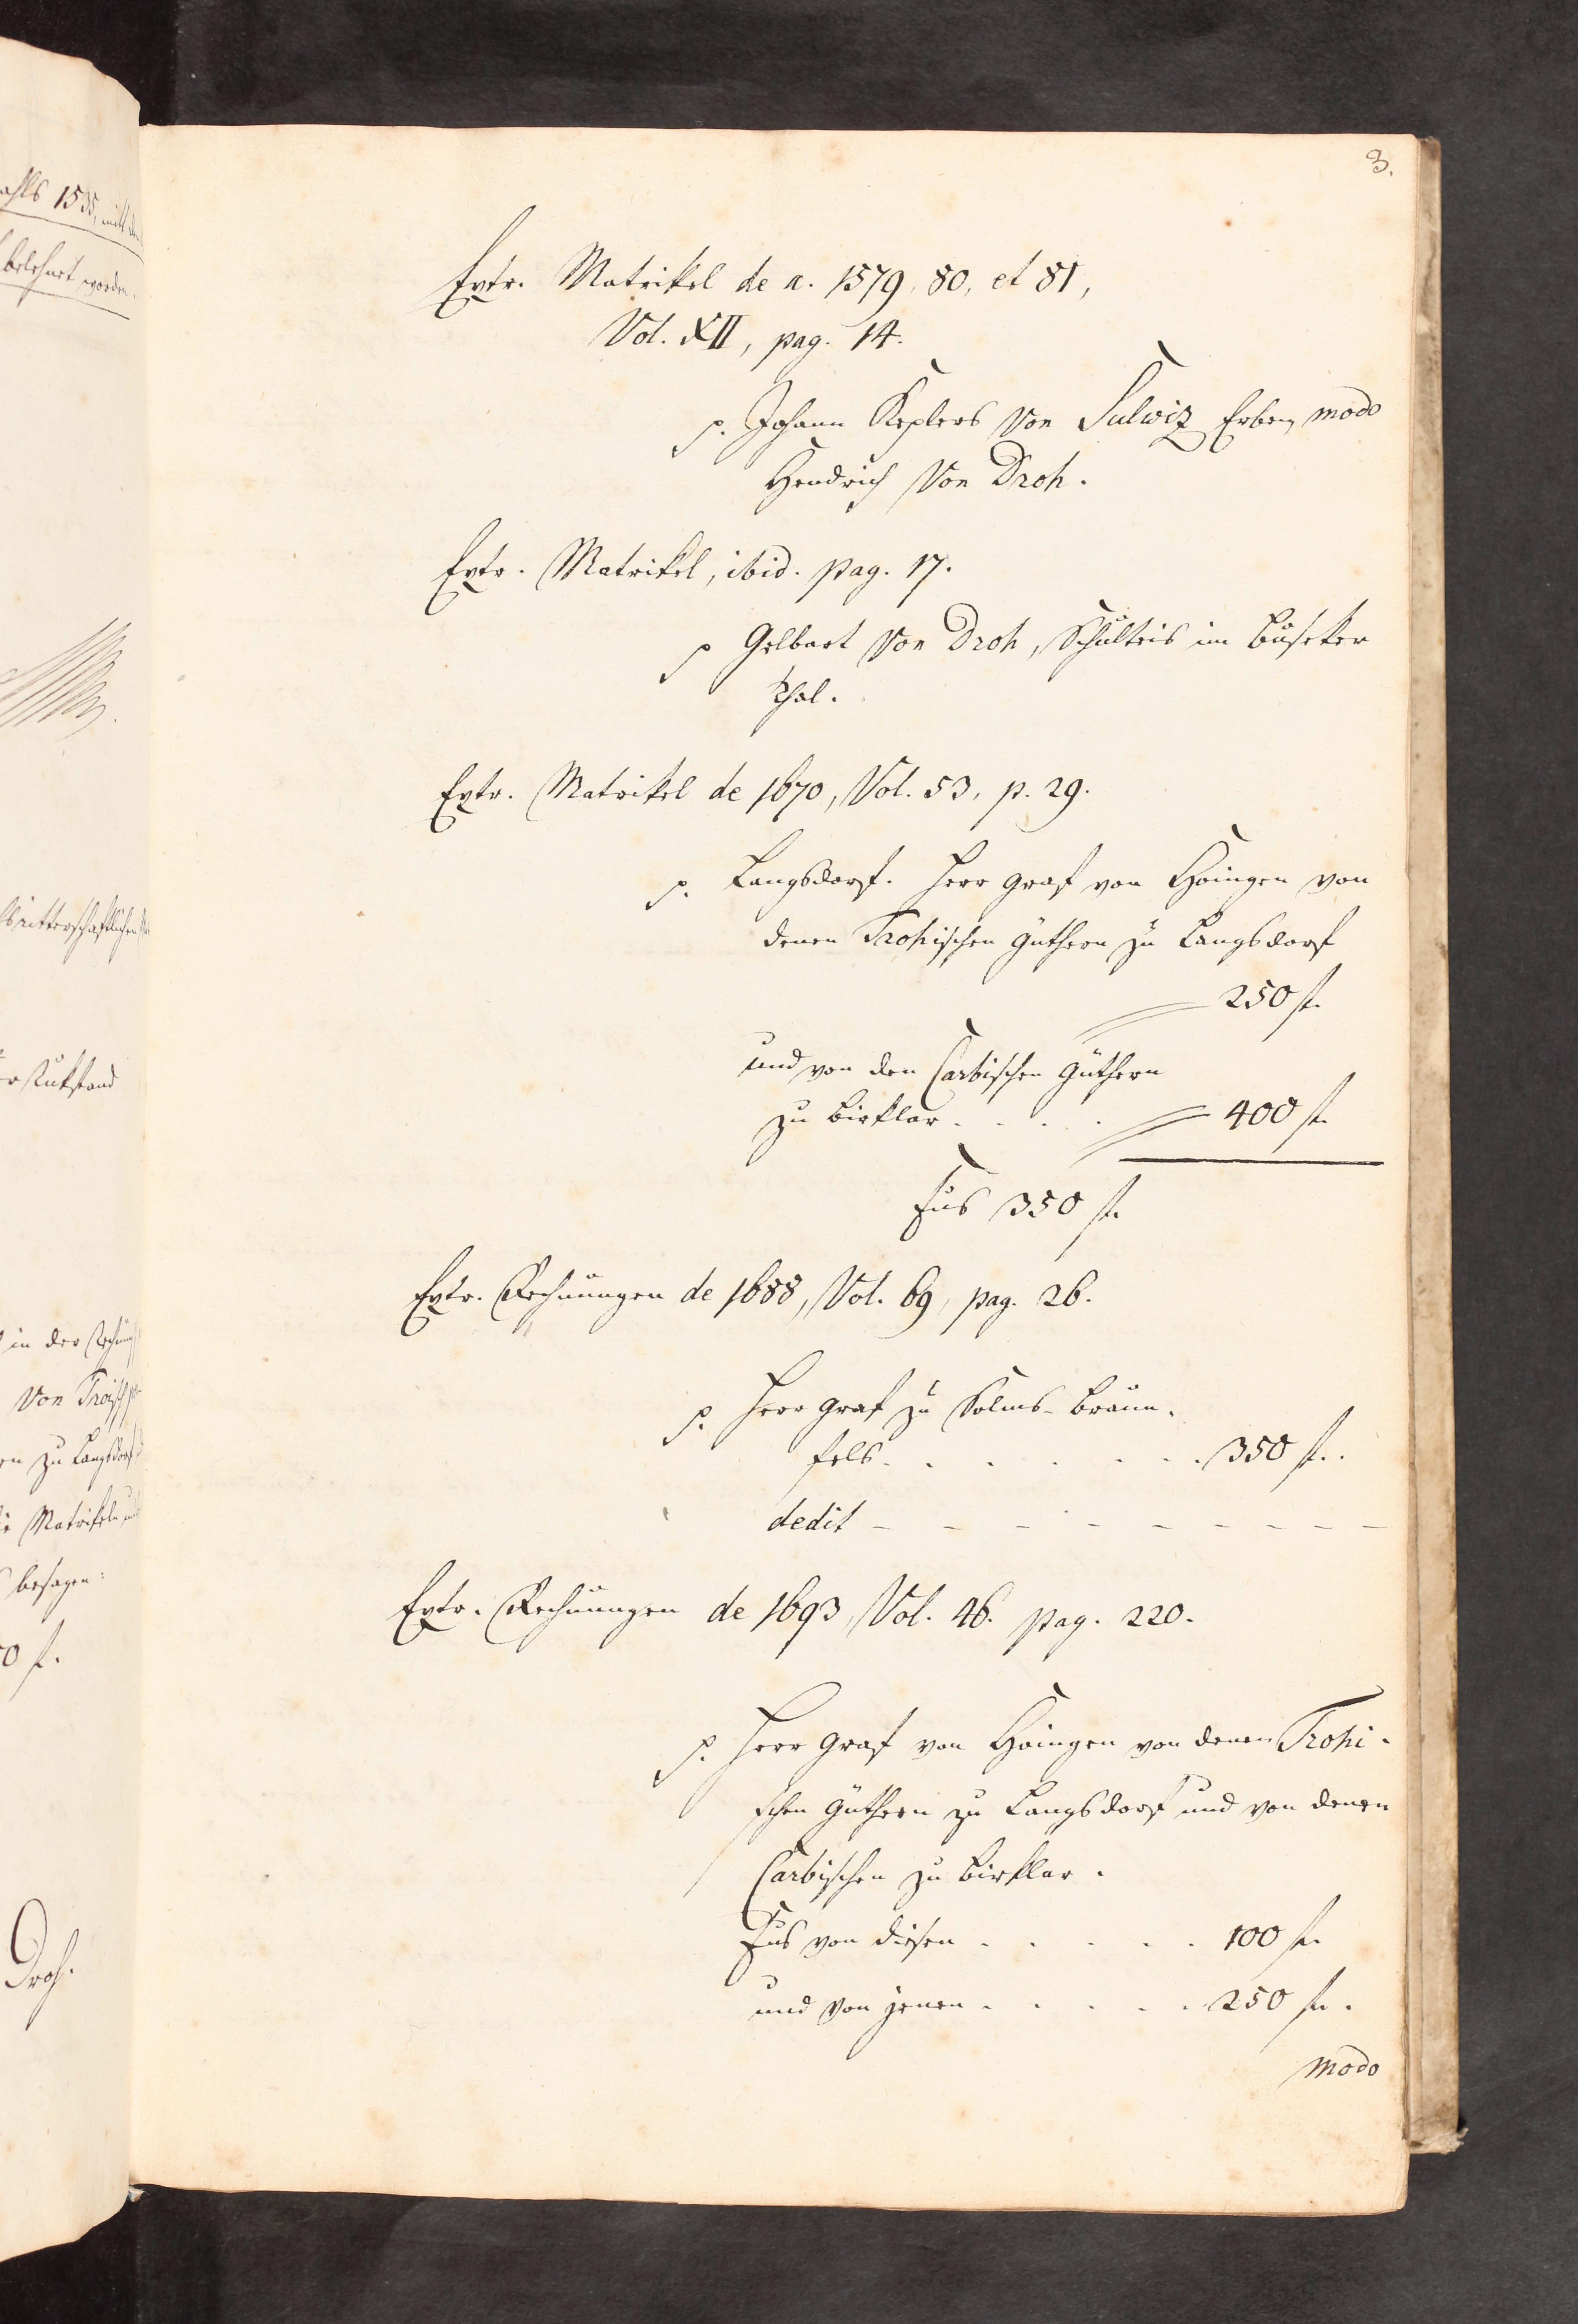 3.
Extr. Matrikel de a. 1579, 80, et 81,
Vol. XII, pag. 14.
p. Johann Keplers von Sulwiz Erben, modo
Hendrich von Droh.
Extr. Matrikel, ibid. pag. 17.
p Gelbart von Droh, Schulteis im Buseker
Thal.
Extr. Matrikel de 1670, Vol. 53, p. 29.
p. Langsdorf. Herr Graf von Hoingen von
denen Trohischen Güthern zu Langsdorf
250 fl.
und von den Carbischen Güthern
zu Birklar . . . . 400 fl.
Fus 350 fl.
Extr. Rechnungen de 1688, Vol. 69, pag. 26.
p. Herr Graf zu Solms-Braun-
fels. . . . . . . 350 fl..
dedit - - - - - - - - -
Extr. Rechnungen de 1693, Vol. 46. pag. 220.
p. Herr Graf von Hoingen von denen Trohi-
schen Güthern zu Langsdorf und von denen
Carbischen zu Birklar.
Fus von diesen . . . . . 100 fl.
und von jenen . . . . . 250 fl.
modo
ahls 1535, mit
belehnet worden.
ritterschaftlichen
in der
von
zu Langsdorf
Matrikeln
besagen:
0 fl.
Droh.